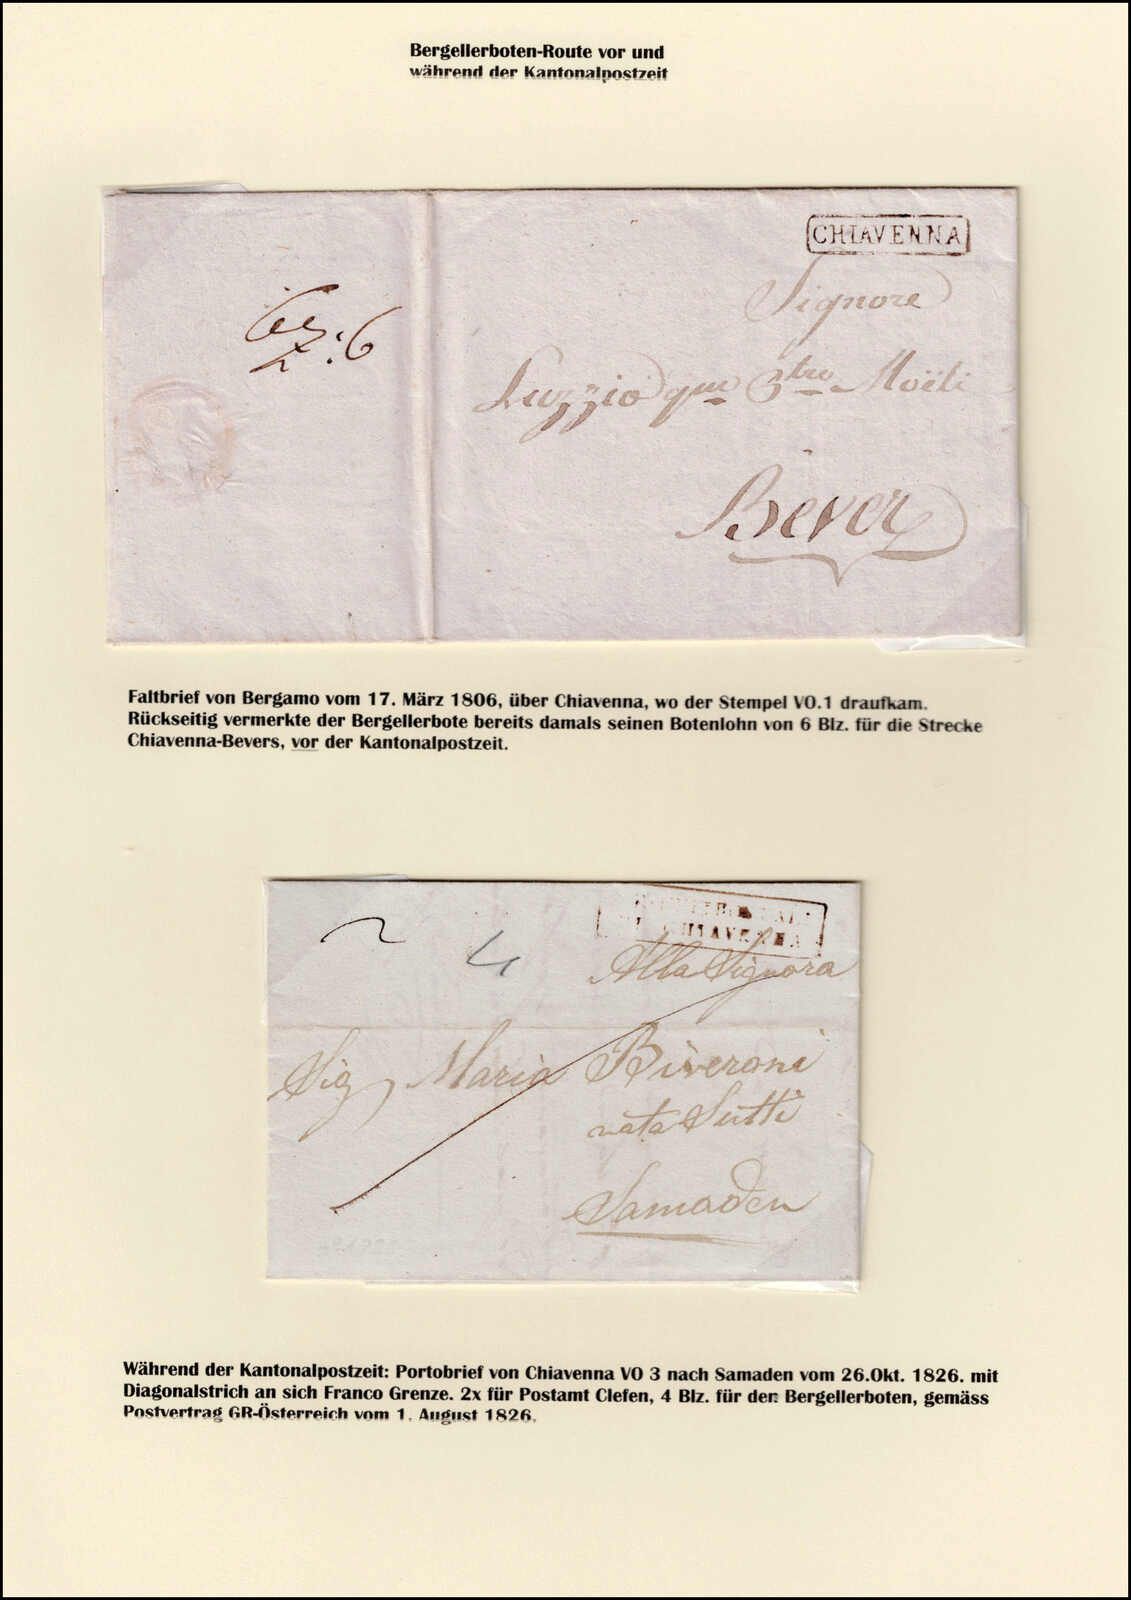 Bergellerboten-Route vor und
während der Kantonalpostzeit
CHIAVENNA
Signore
:6
Luzzio qm 3tro Moëli
Bever
Faltbrief von Bergamo vom 17. März 1806, über Chiavenna, wo der Stempel VO.1 draufkam.
Rückseitig vermerkte der Bergellerbote bereits damals seinen Botenlohn von 6 Blz. für die Strecke
Chiavenna-Bevers, vor der Kantonalpostzeit.
CHIAVENNA
2 4
Alla Signora
Sig Maria Biveroni
nata Sutti
Samaden
Während der Kantonalpostzeit: Portobrief von Chiavenna VO 3 nach Samaden vom 26.Okt. 1826. mit
Diagonalstrich an sich Franco Grenze. 2x für Postamt Clefen, 4 Blz. für den Bergellerboten, gemäss
Postvertrag GR-Österreich vom 1. August 1826.